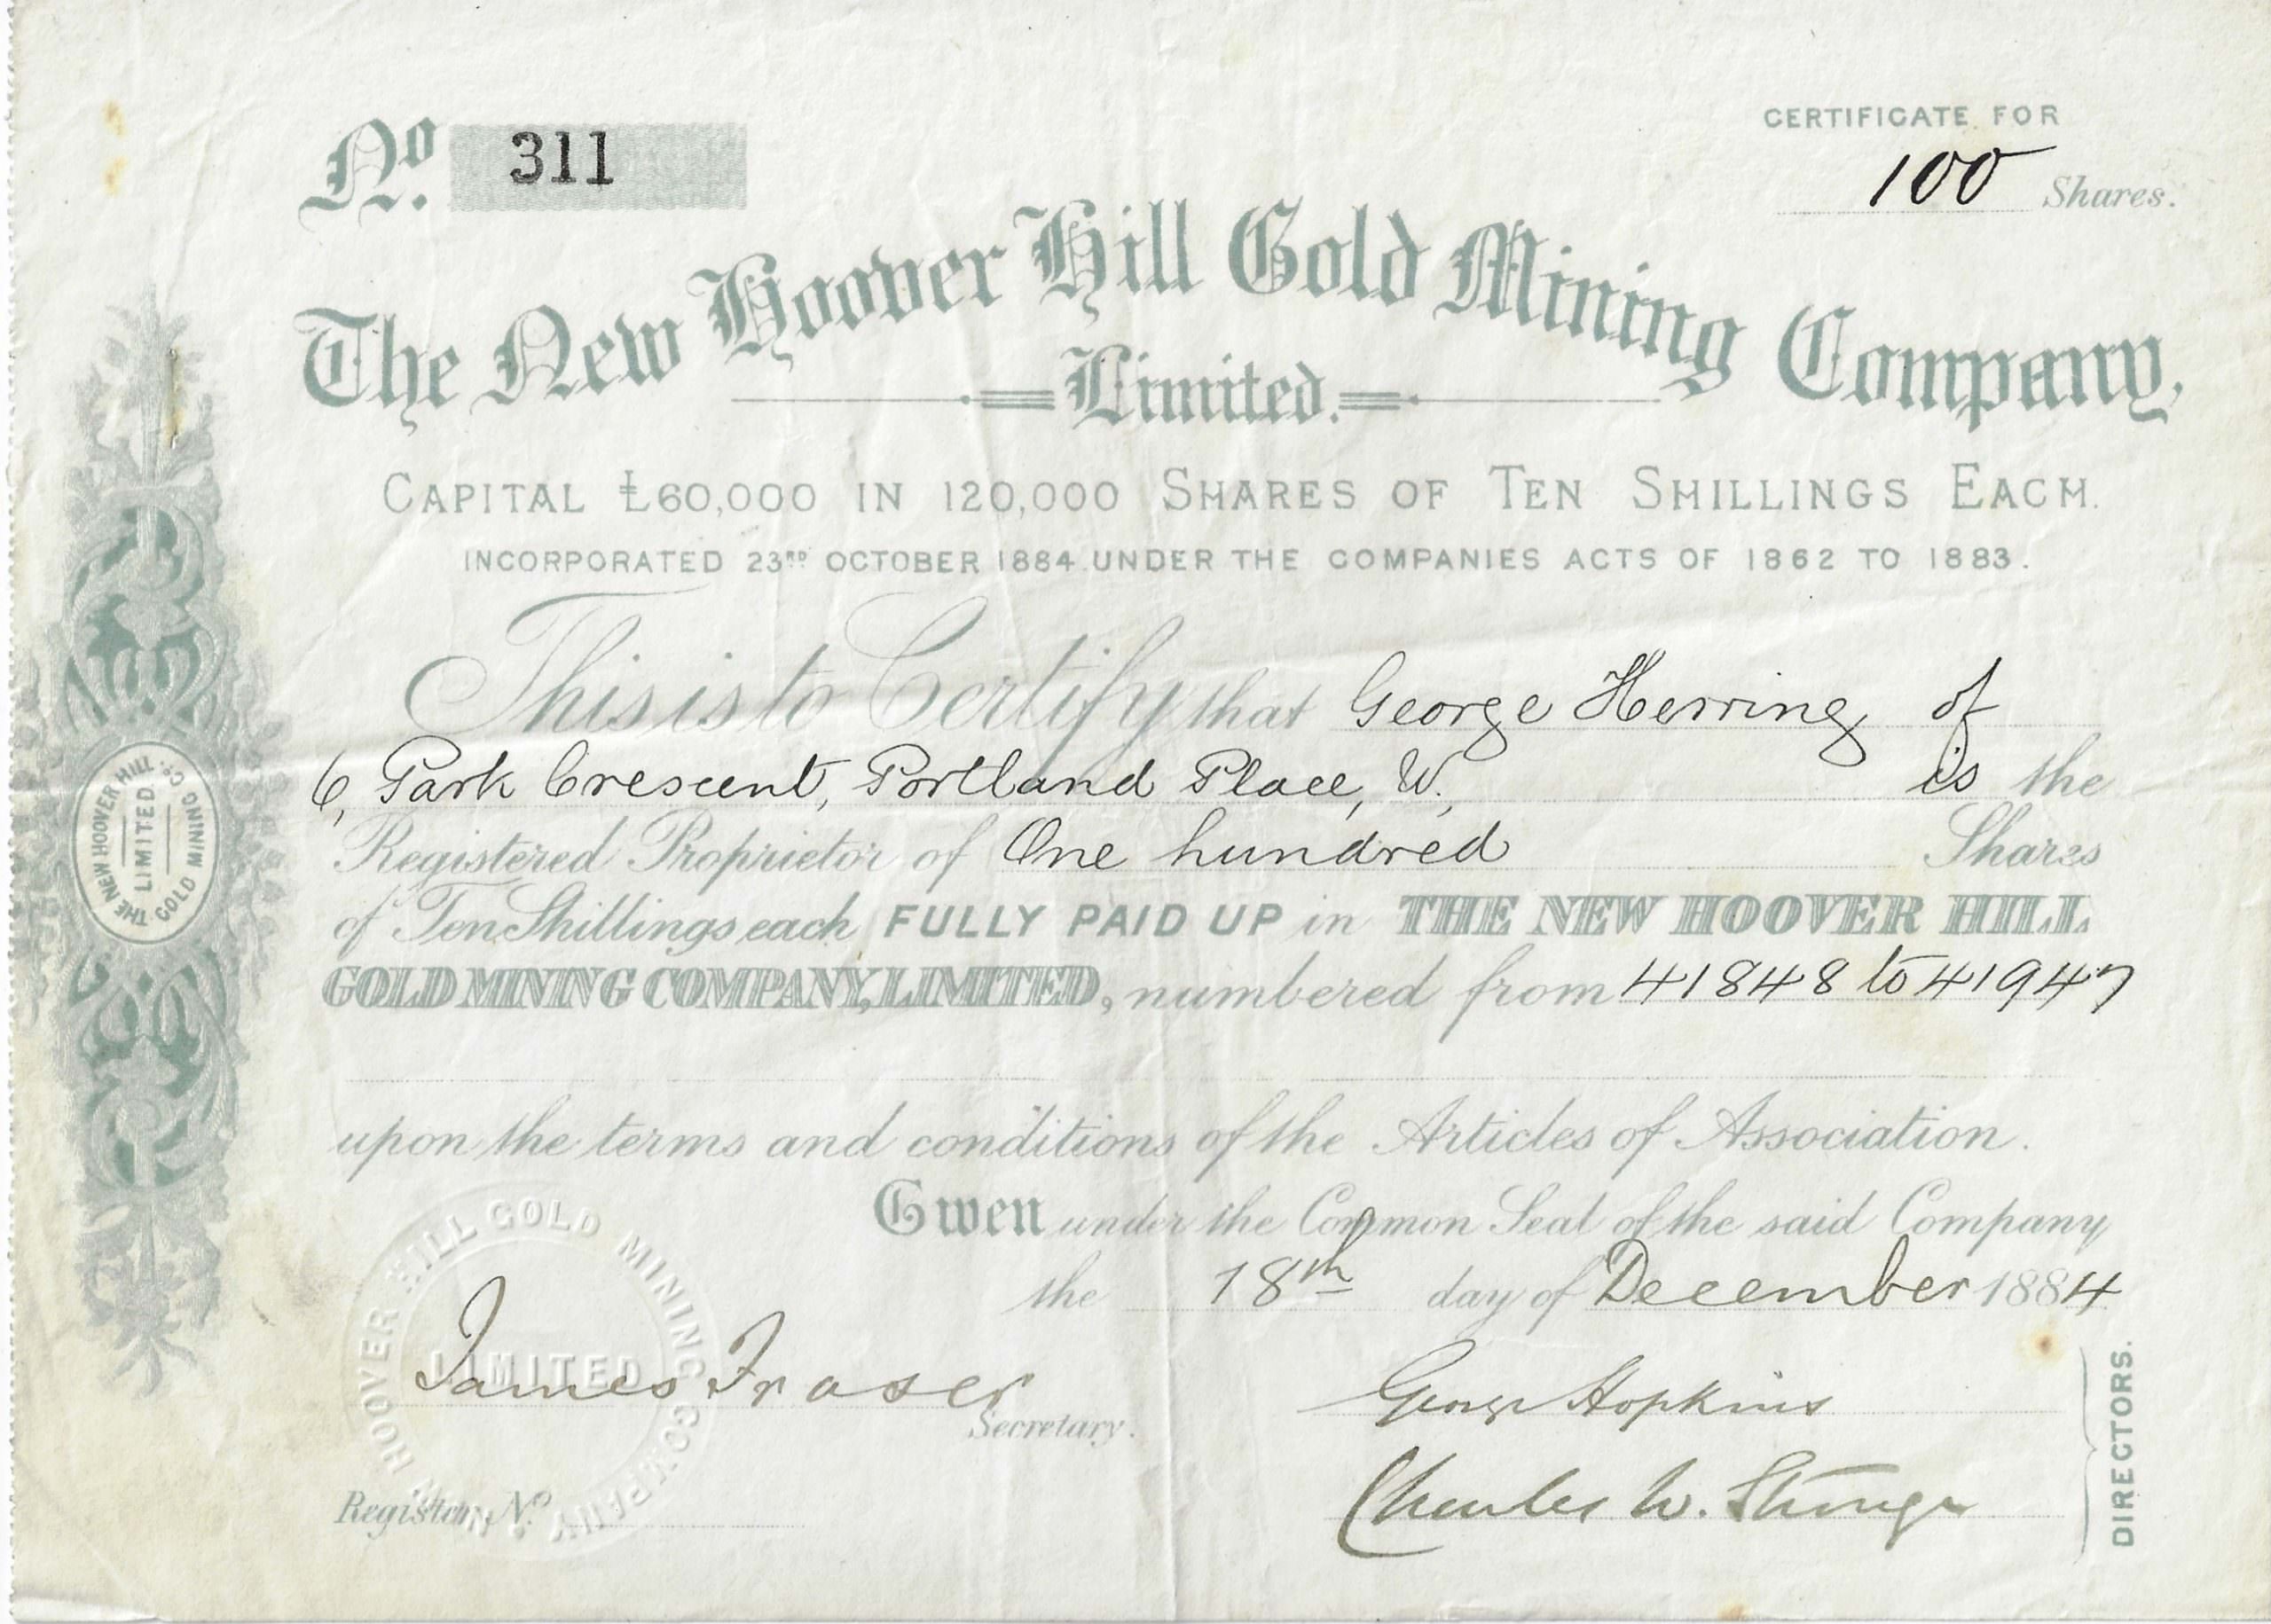 No. 311
CERTIFICATE FOR
100 Shares.
The New Hoover Hill Gold Mining Company,
Limited.
CAPITAL £60,000 IN 120,000 SHARES OF TEN SHILLINGS EACH.
INCORPORATED 23RD OCTOBER 1884 UNDER THE COMPANIES ACTS OF 1862 TO 1883.
This is to Certify that George Herring of
6, Park Crescent, Portland Place, W. is the
Registered Proprietor of One hundred Shares
of Ten Shillings each FULLY PAID UP in THE NEW HOOVER HILL
GOLD MINING COMPANY, LIMITED, numbered from 41848 to 41947
upon the terms and conditions of the Articles of Association.
Given under the Common Seal of the said Company
the 18th day of December 1884
James Fraser
Secretary.
George Hopkins
Charles W.
DIRECTORS.
Register No.
THE NEW HOOVER HILL GOLD MINING CO.
LIMITED
NEW HOOVER HILL GOLD MINING COMPANY
LIMITED